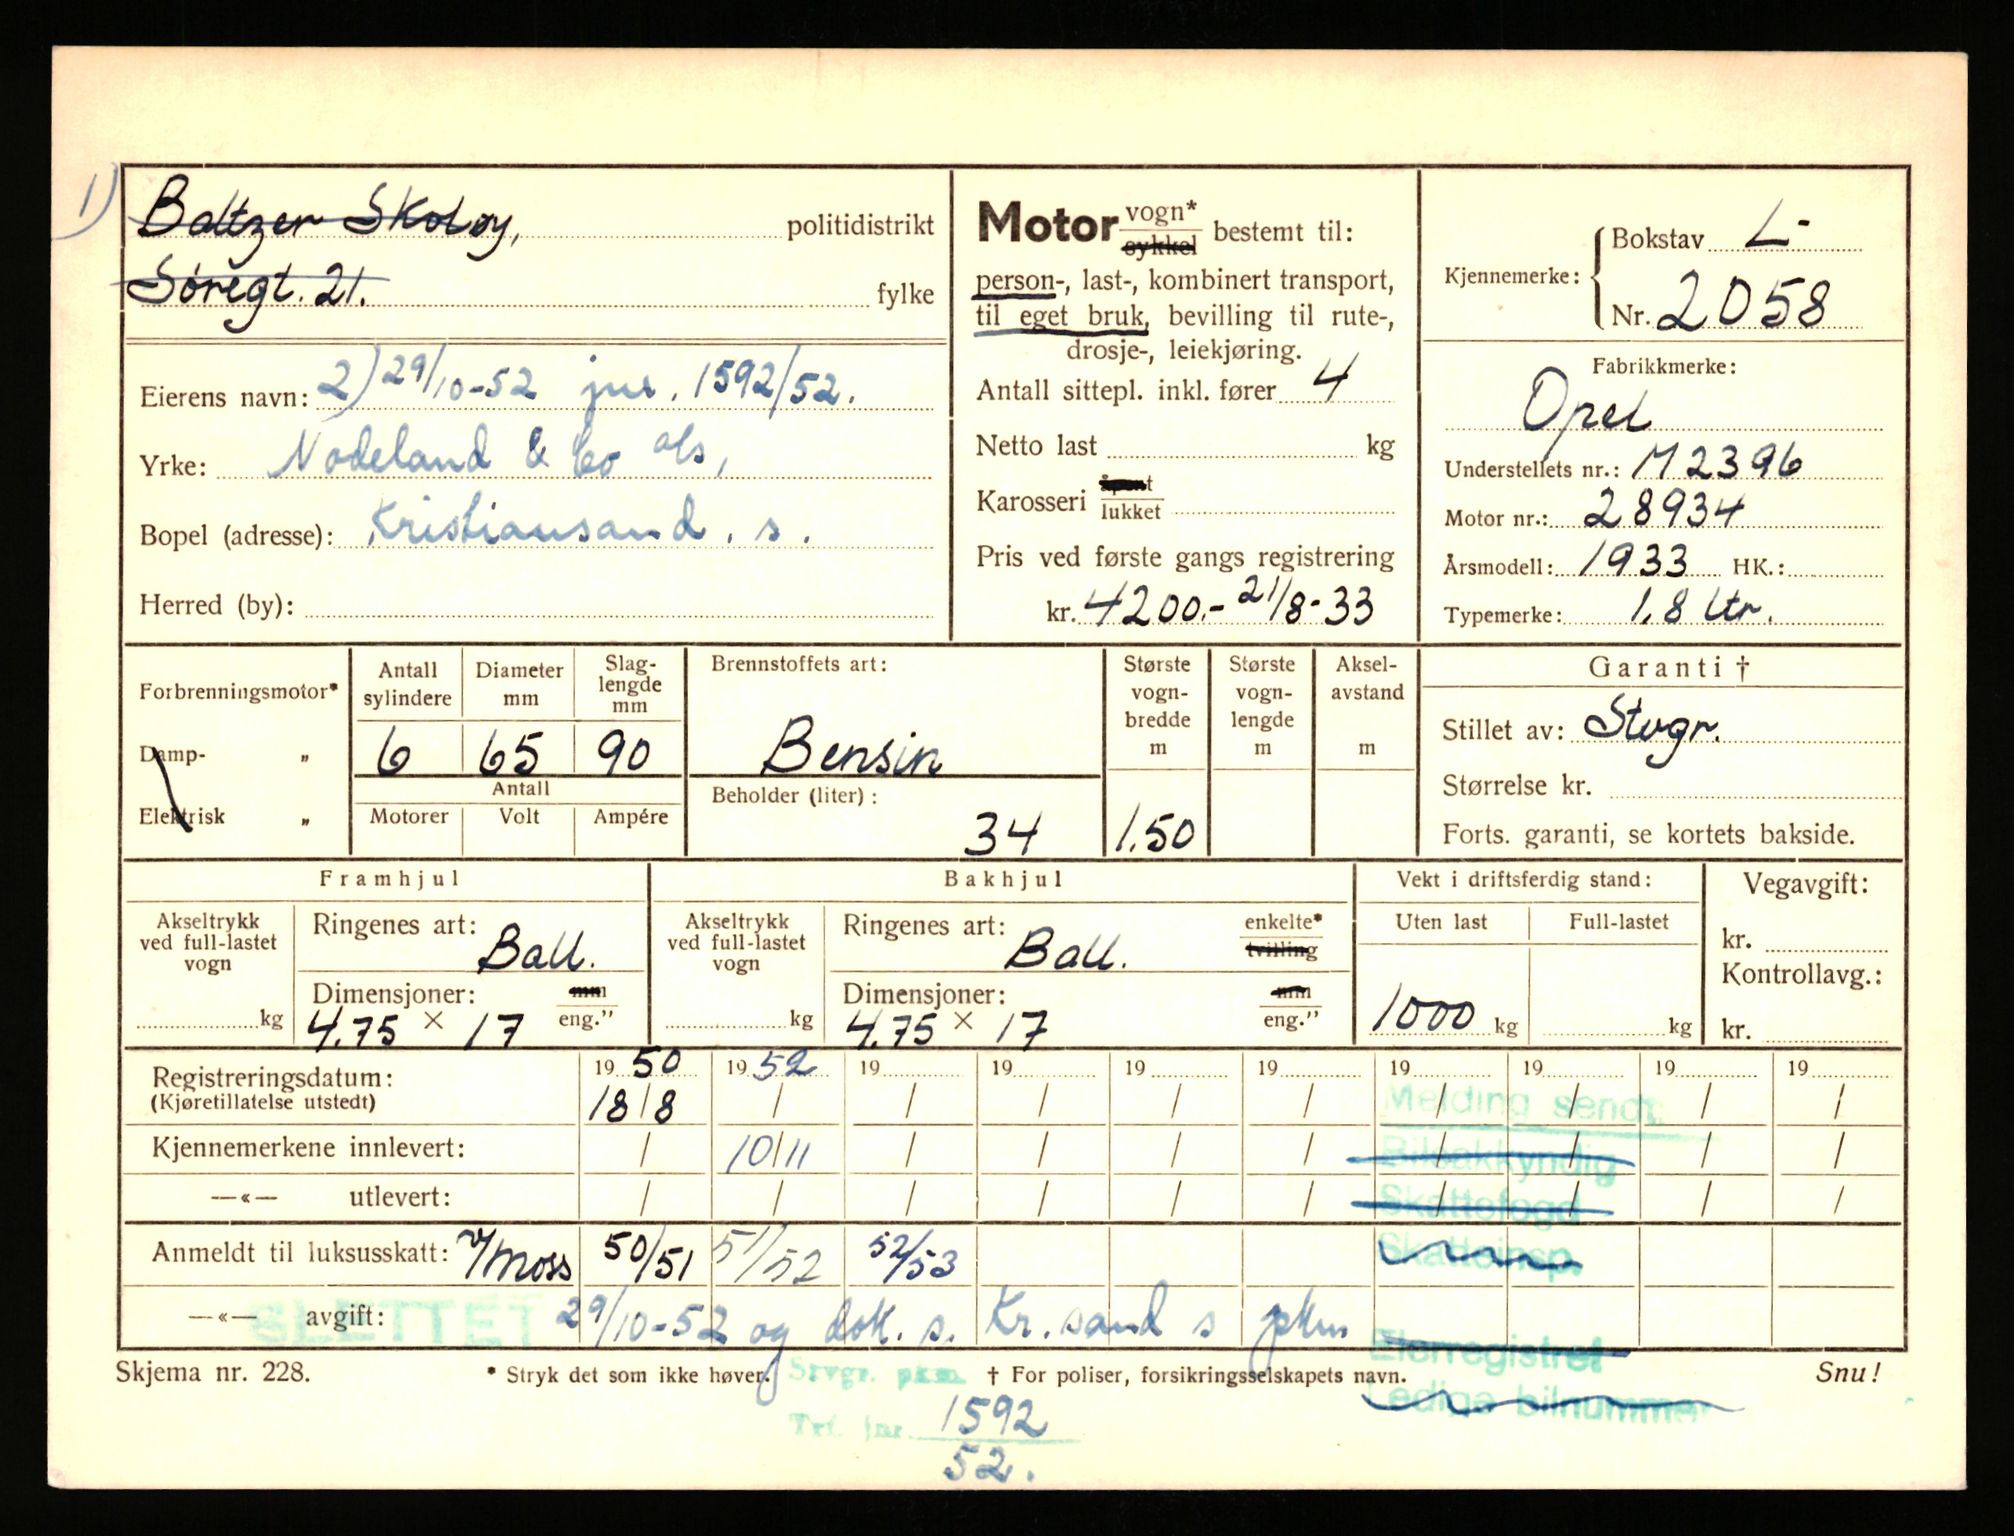 1)
Baltzer Skoløy, politidistrikt
Søregt. 21. fylke
Eierens navn: 2) 29/10-52 jnr. 1592/52.
Yrke: Nodeland & Co A/s,
Bopel (adresse): Kristiansand. s.
Herred (by):
Motor vogn* sykkel bestemt til:
person-, last-, kombinert transport,
til eget bruk, bevilling til rute-,
drosje-, leiekjøring.
Antall sittepl. inkl. fører 4
Netto last kg
Karosseri åpent lukket
Pris ved første gangs registrering
kr. 4200.- 21/8-33
Kjennemerke: Bokstav L-
Nr. 2058
Fabrikkmerke:
Opel
Understellets nr.: M2396
Motor nr.: 28934
Årsmodell: 1933 HK.:
Typemerke: 1,8 ltr.
Forbrenningsmotor*
Damp- „
Elektrisk „
Antall sylindere Diameter mm Slag-lengde mm
6 65 90
Antall
Motorer Volt Ampére
Brennstoffets art:
Bensin
Beholder (liter):
34
Største vogn-bredde m Største vogn-lengde m Aksel-avstand m
1.50
Garanti †
Stillet av: Stvgr.
Størrelse kr.
Forts. garanti, se kortets bakside.
Framhjul
Akseltrykk ved full-lastet vogn
kg
Ringenes art:
Ball.
Dimensjoner: mm
4.75 × 17 eng.”
Bakhjul
Akseltrykk ved full-lastet vogn
kg
Ringenes art: enkelte*
Ball. tvilling
Dimensjoner: mm
4.75 × 17 eng.”
Vekt i driftsferdig stand:
Uten last Full-lastet
1000 kg kg
Vegavgift:
kr.
Kontrollavg.:
kr.
Registreringsdatum: 19 50 19 52 19 19 19 19 19 19 19 19
(Kjøretillatelse utstedt) 18/8 / / / / / / / / /
Kjennemerkene innlevert: / 10/11 / / / / / / / /
—«— utlevert: / / / / / / / / / /
Anmeldt til luksusskatt: v/Moss 50/51 51/52 52/53
—«— avgift: 29/10-52 og dok. s. Kr.sand s pkm
SLETTET
Melding sendt
Bilsakkyndig
Skattefogd
Skatteinsp.
Eierregistret
Ledige bilnummer
Skjema nr. 228.
* Stryk det som ikke høver.
† For poliser, forsikringsselskapets navn.
Snu!
Stvgr. pkm.
Trf. jnr. 1592
52.